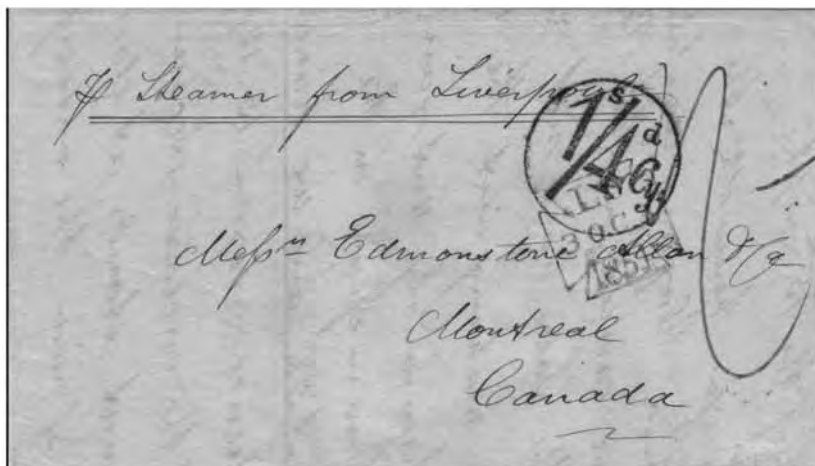 ℔ Steamer from Liverpool
1/4 s d Cy
3 OC 3
1851
Messrs Edmonstone Allan & Co
Montreal
Canada